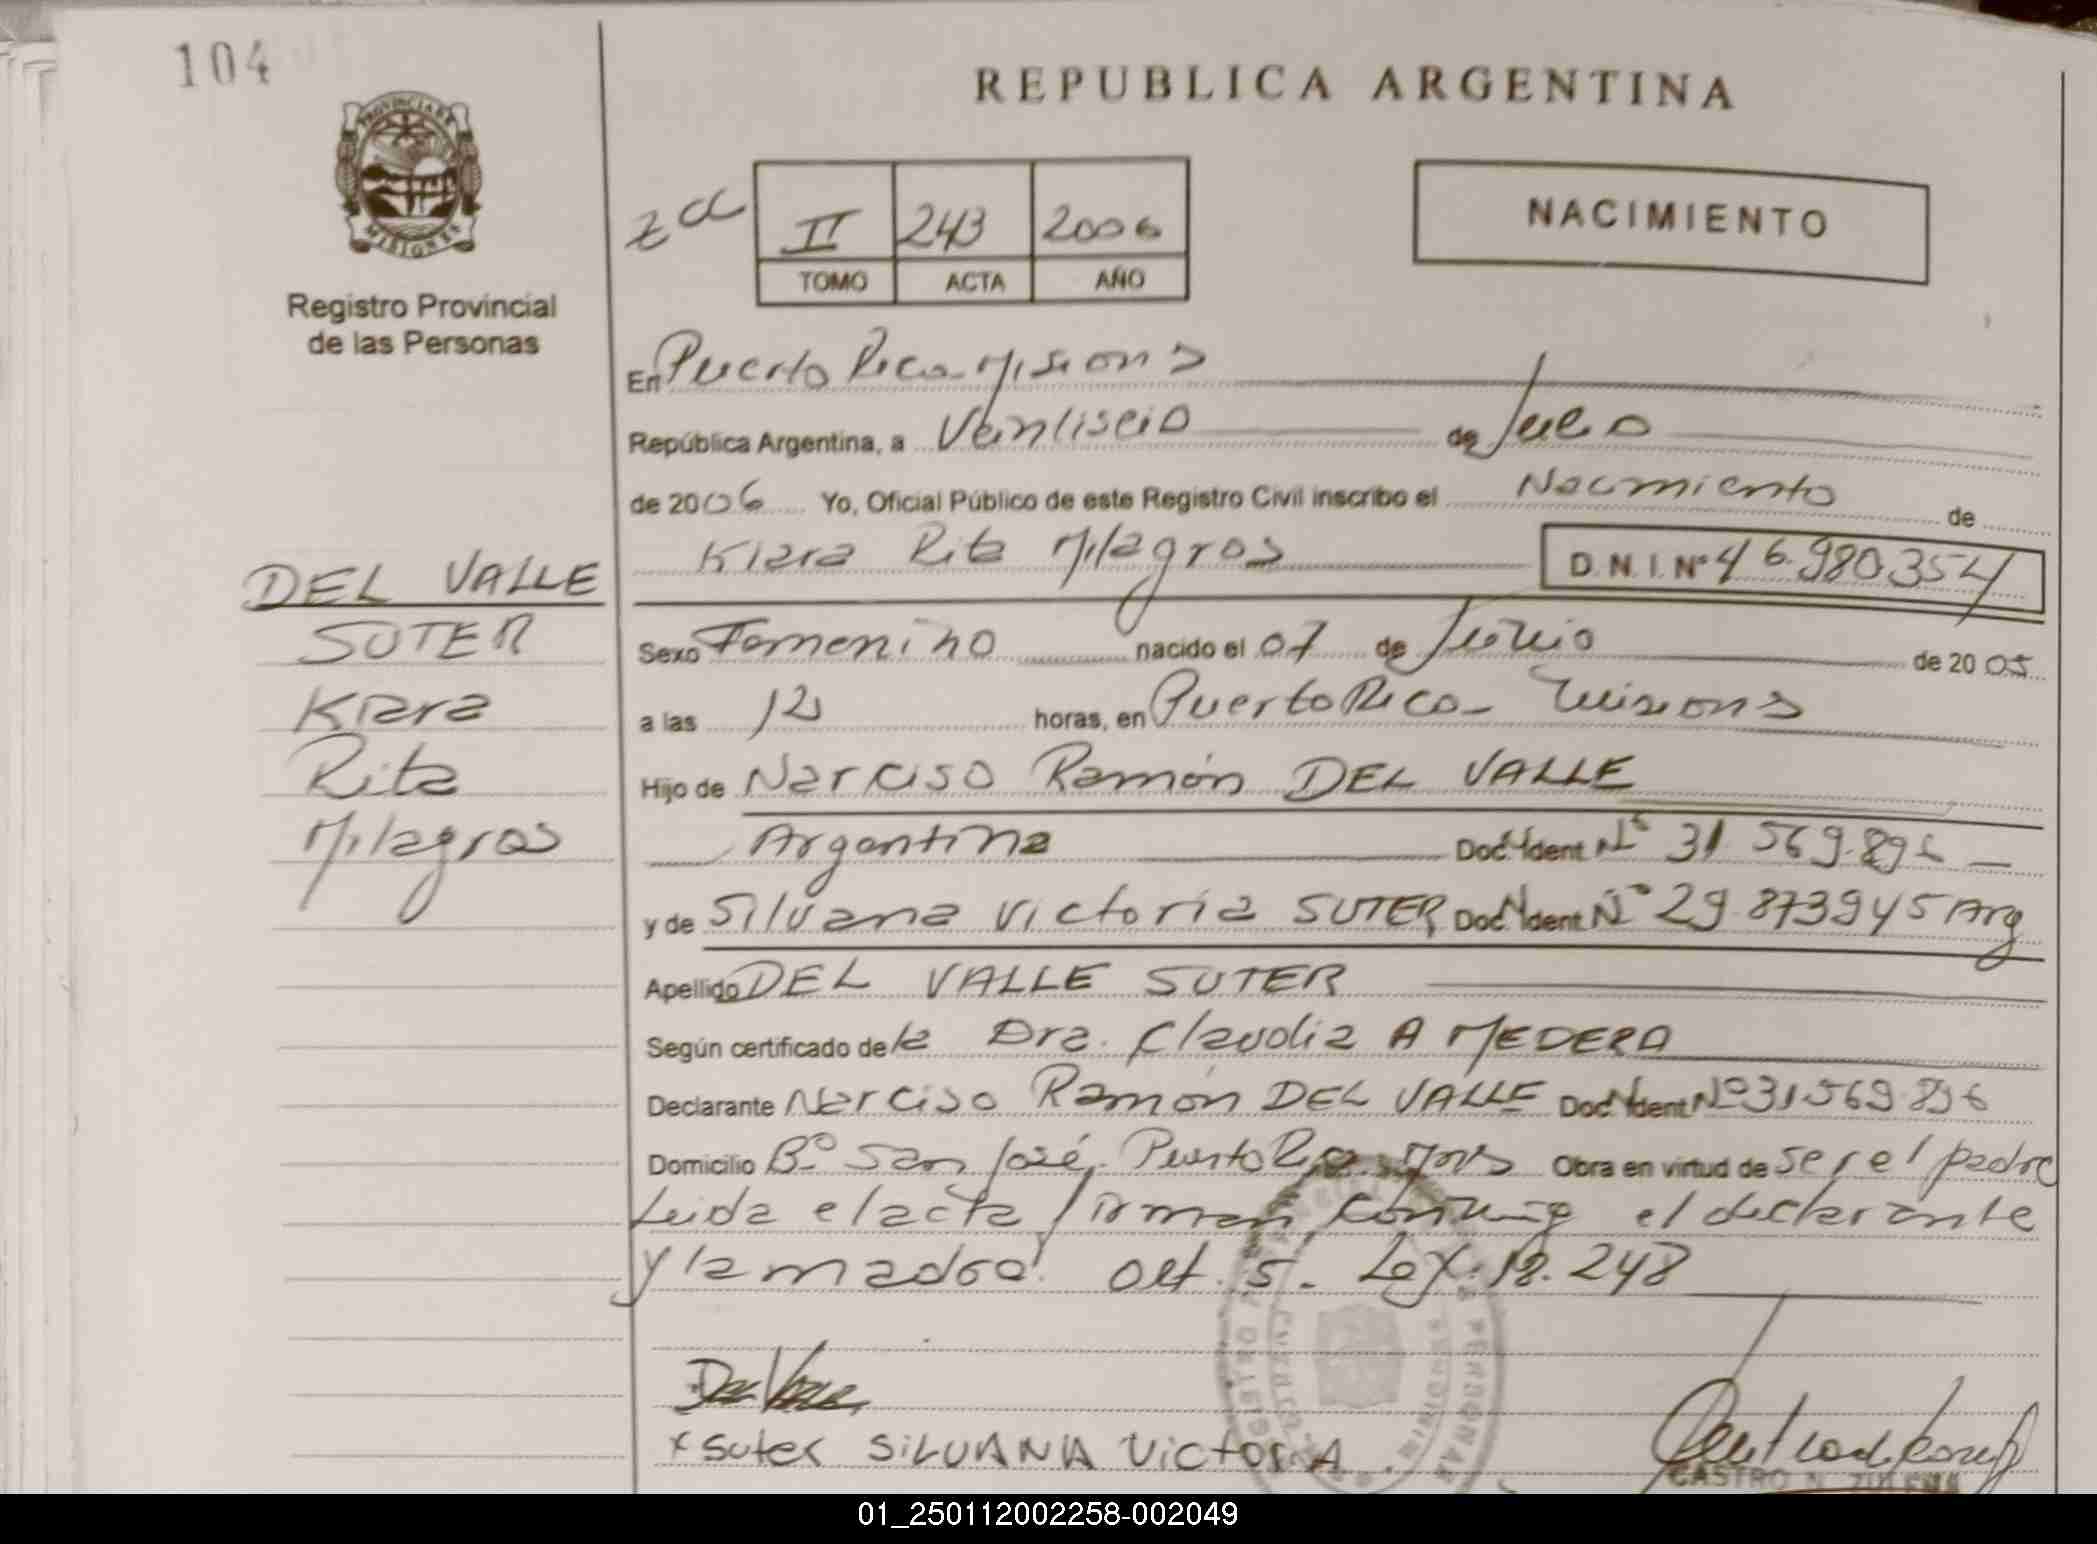 104
REPUBLICA ARGENTINA
PROVINCIA DE
MISIONES
Registro Provincial
de las Personas
II 243 2006
TOMO ACTA AÑO
NACIMIENTO
En Puerto Rico - Misiones
República Argentina, a Veintiseis de Julio
de 2006 Yo, Oficial Público de este Registro Civil inscribo el Nacimiento de
Kiara Rita Milagros D.N.I. Nº 46.980.354
DEL VALLE
SUTER
Kiara
Rita
Milagros
Sexo Femenino nacido el 07 de de 2005
a las 12 horas, en Puerto Rico - Misiones
Hijo de Narciso Ramón DEL VALLE
Argentina Doc. Ident Nº 31.569.896
y de Silvana Victoria SUTER Doc. Ident Nº 29.873945 Arg
Apellido DEL VALLE SUTER
Según certificado de la Dra. Claudia A MEDERA
Declarante Narciso Ramón DEL VALLE Doc. Ident Nº 31569.896
Domicilio Bº San José, Puerto Rico Obra en virtud de ser el padre
Leida el acta firman conmigo el declarante
y la madre. 5. Ley. 18.248
Del Valle
x Suter SILVANA VICTORIA
CASTRO N. ZULEMA
01_250112002258-002049